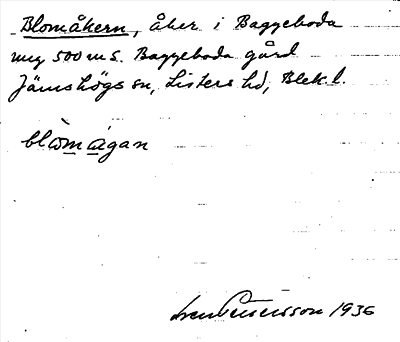 Blomåkern, åker i Baggeboda
omg 500 m S. Baggeboda gård
Jämshögs sn, Listers hd, Blek. l.
blòmàgan
Sven Persson 1936